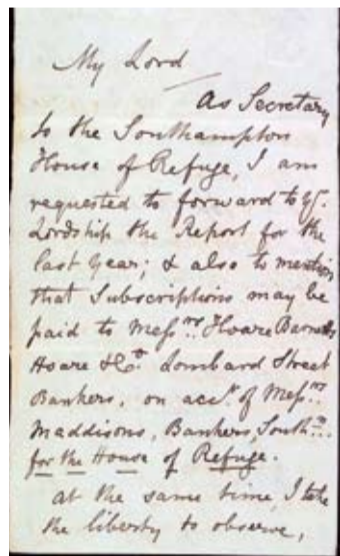 My Lord
As Secretary
to the Southampton
House of Refuge, I am
requested to forward to yr.
Lordship the Report for the
last year; & also to mention
that Subscriptions may be
paid to Messrs. Hoare Barnetts
Hoare & Co. Lombard Street
Bankers, on acct. of Messrs.
Maddisons, Bankers, Southn.
for the House of Refuge.
At the same time, I take
the liberty to observe,